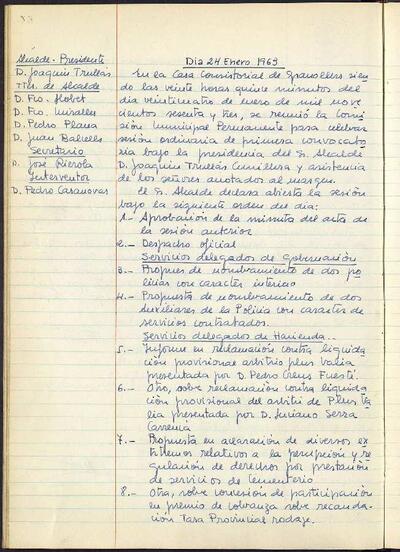 Alcalde-Presidente
D. Joaquín Trullás
Ttes. de Alcalde
D. Fco. Llobet
D. Fco. Miralles
D. Pedro Plana
D. Juan Balcells
Secretario
D. José Rierola
Interventor
D. Pedro Casanovas
Día 24 Enero 1963
En la Casa Consistorial de Granollers sien-
do las veinte horas quince minutos del
día veinticuatro de enero de mil nove
cientos sesenta y tres, se reunió la Comi
sión Municipal Permanente para celebrar
sesión ordinaria de primera convocato
ria bajo la presidencia del Sr. Alcalde
D. Joaquín Trullás Cunillera y asistencia
de los señores anotados al margen.
El Sr. Alcalde declara abierta la sesión
bajo la siguiente orden del día:
1.- Aprobación de la minuta del acta de
la sesión anterior
2.- Despacho oficial
Servicios delegados de Gobernación
3.- Propues de nombramiento de dos po
licías con carácter interino
4.- Propuesta de nombramiento de dos
Auxiliares de la Policía con carácter de
servicios contratados.
Servicios delegados de Hacienda..
5.- Informe en reclamación contra liquida
ción provisional arbitrio plus valía
presentada por D. Pedro Creus Fuesti.
6.- Otro, sobre reclamación contra liquida
ción provisional del arbitrio de Plus Va
lia presentada por D. Luciano Serra
Carrencá
7.- Propuesta en aclaración de diversos ex
tremos relativos a la percepción y re
gulación de derechos por prestación
de servicios de Cementerio
8.- Otra, sobre concesión de participación
en premio de cobranza sobre recauda-
ción Tasa Provincial rodaje.